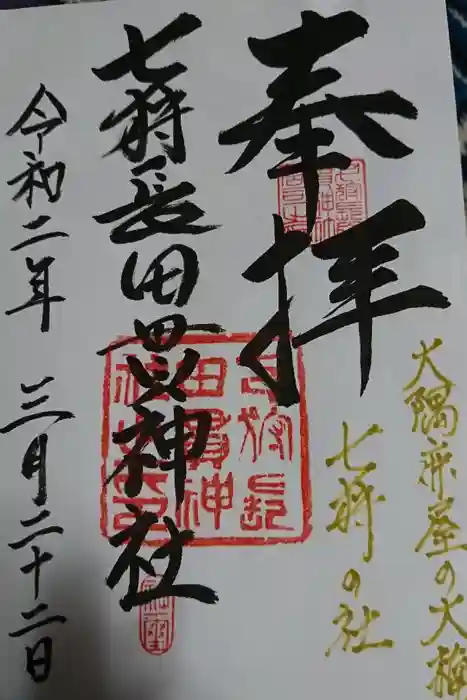 大隅鹿屋の大
七狩の社
奉拝
七狩長田貫神社
七狩長
田貫神
社之印
令和二年 三月二十二日